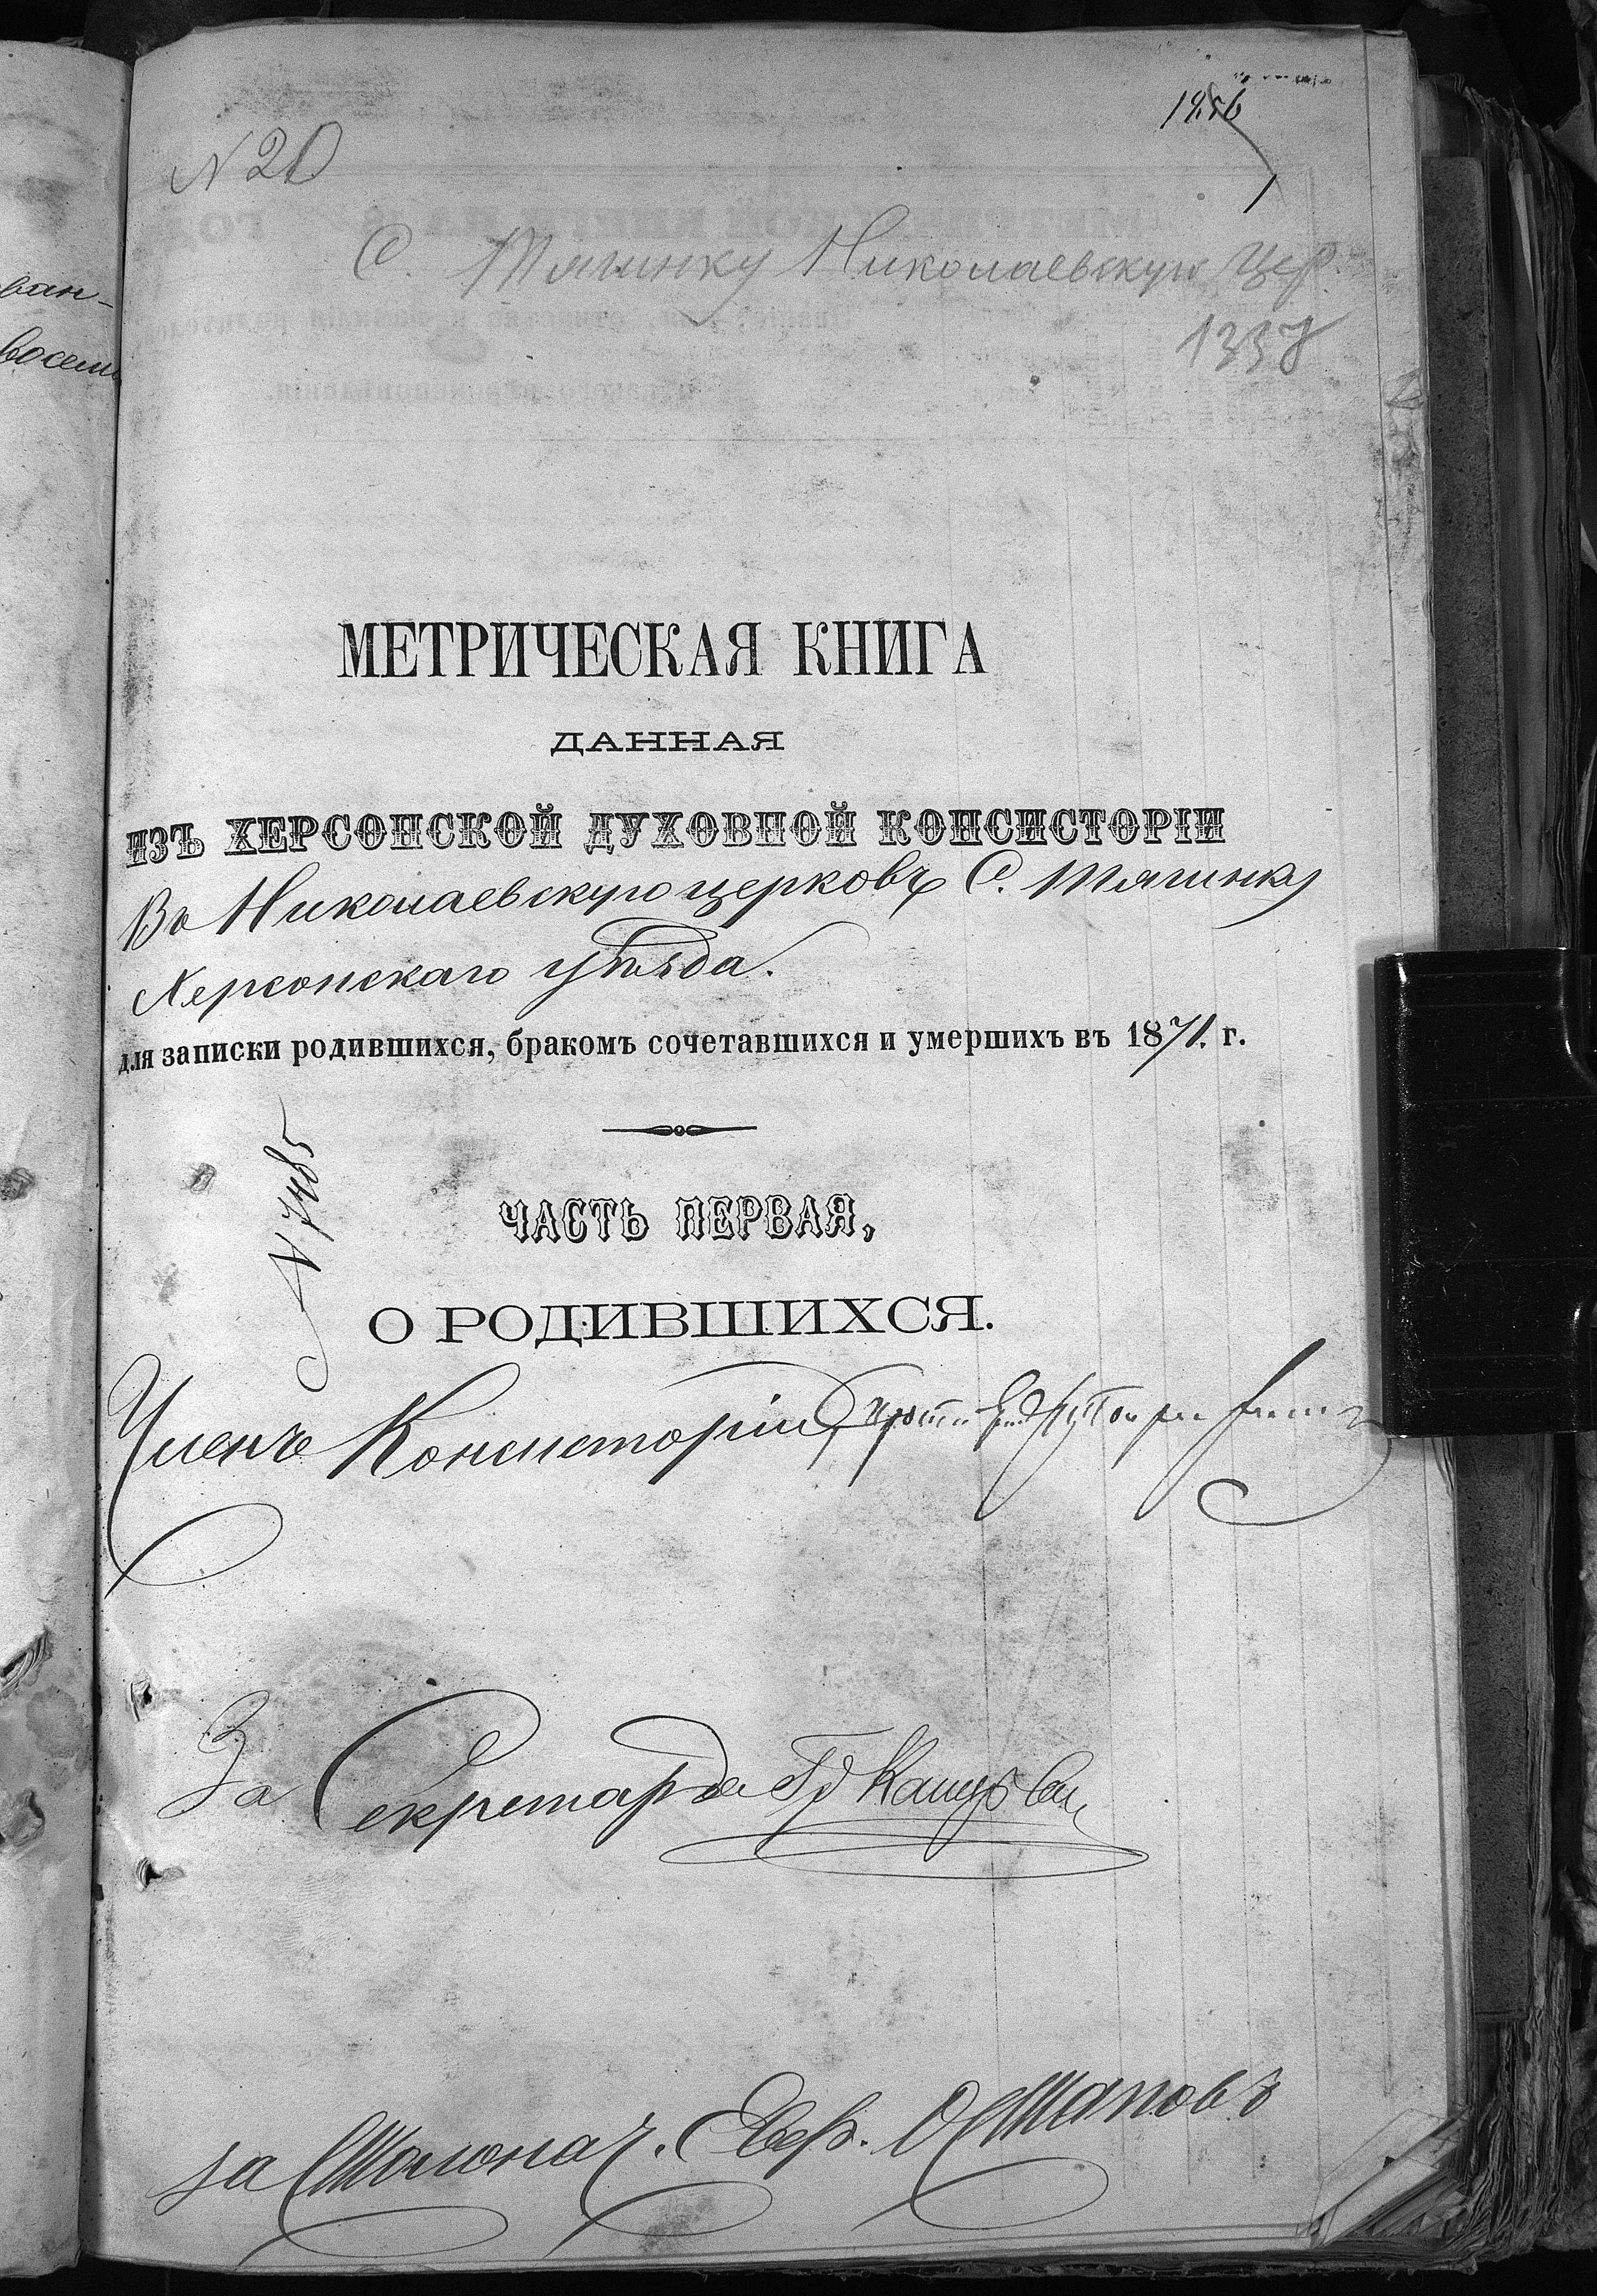 ван-
восемь
N 20
С. Тягинку Николаевскую Цер.
1337
МЕТРИЧЕСКАЯ КНИГА
ДАННАЯ
ИЗЪ ХЕРСОНСКОЙ ДУХОВНОЙ КОНСИСТОРІИ
Въ Николаевскую церковь С. Тягинку
Херсонскаго уѣзда.
для записки родившихся, бракомъ сочетавшихся и умершихъ въ 1871. г.
N 7485
ЧАСТЬ ПЕРВАЯ,
О РОДИВШИХСЯ.
Членъ Консисторіи,
За Секретаря
за Столонач. Евф. Остаповъ